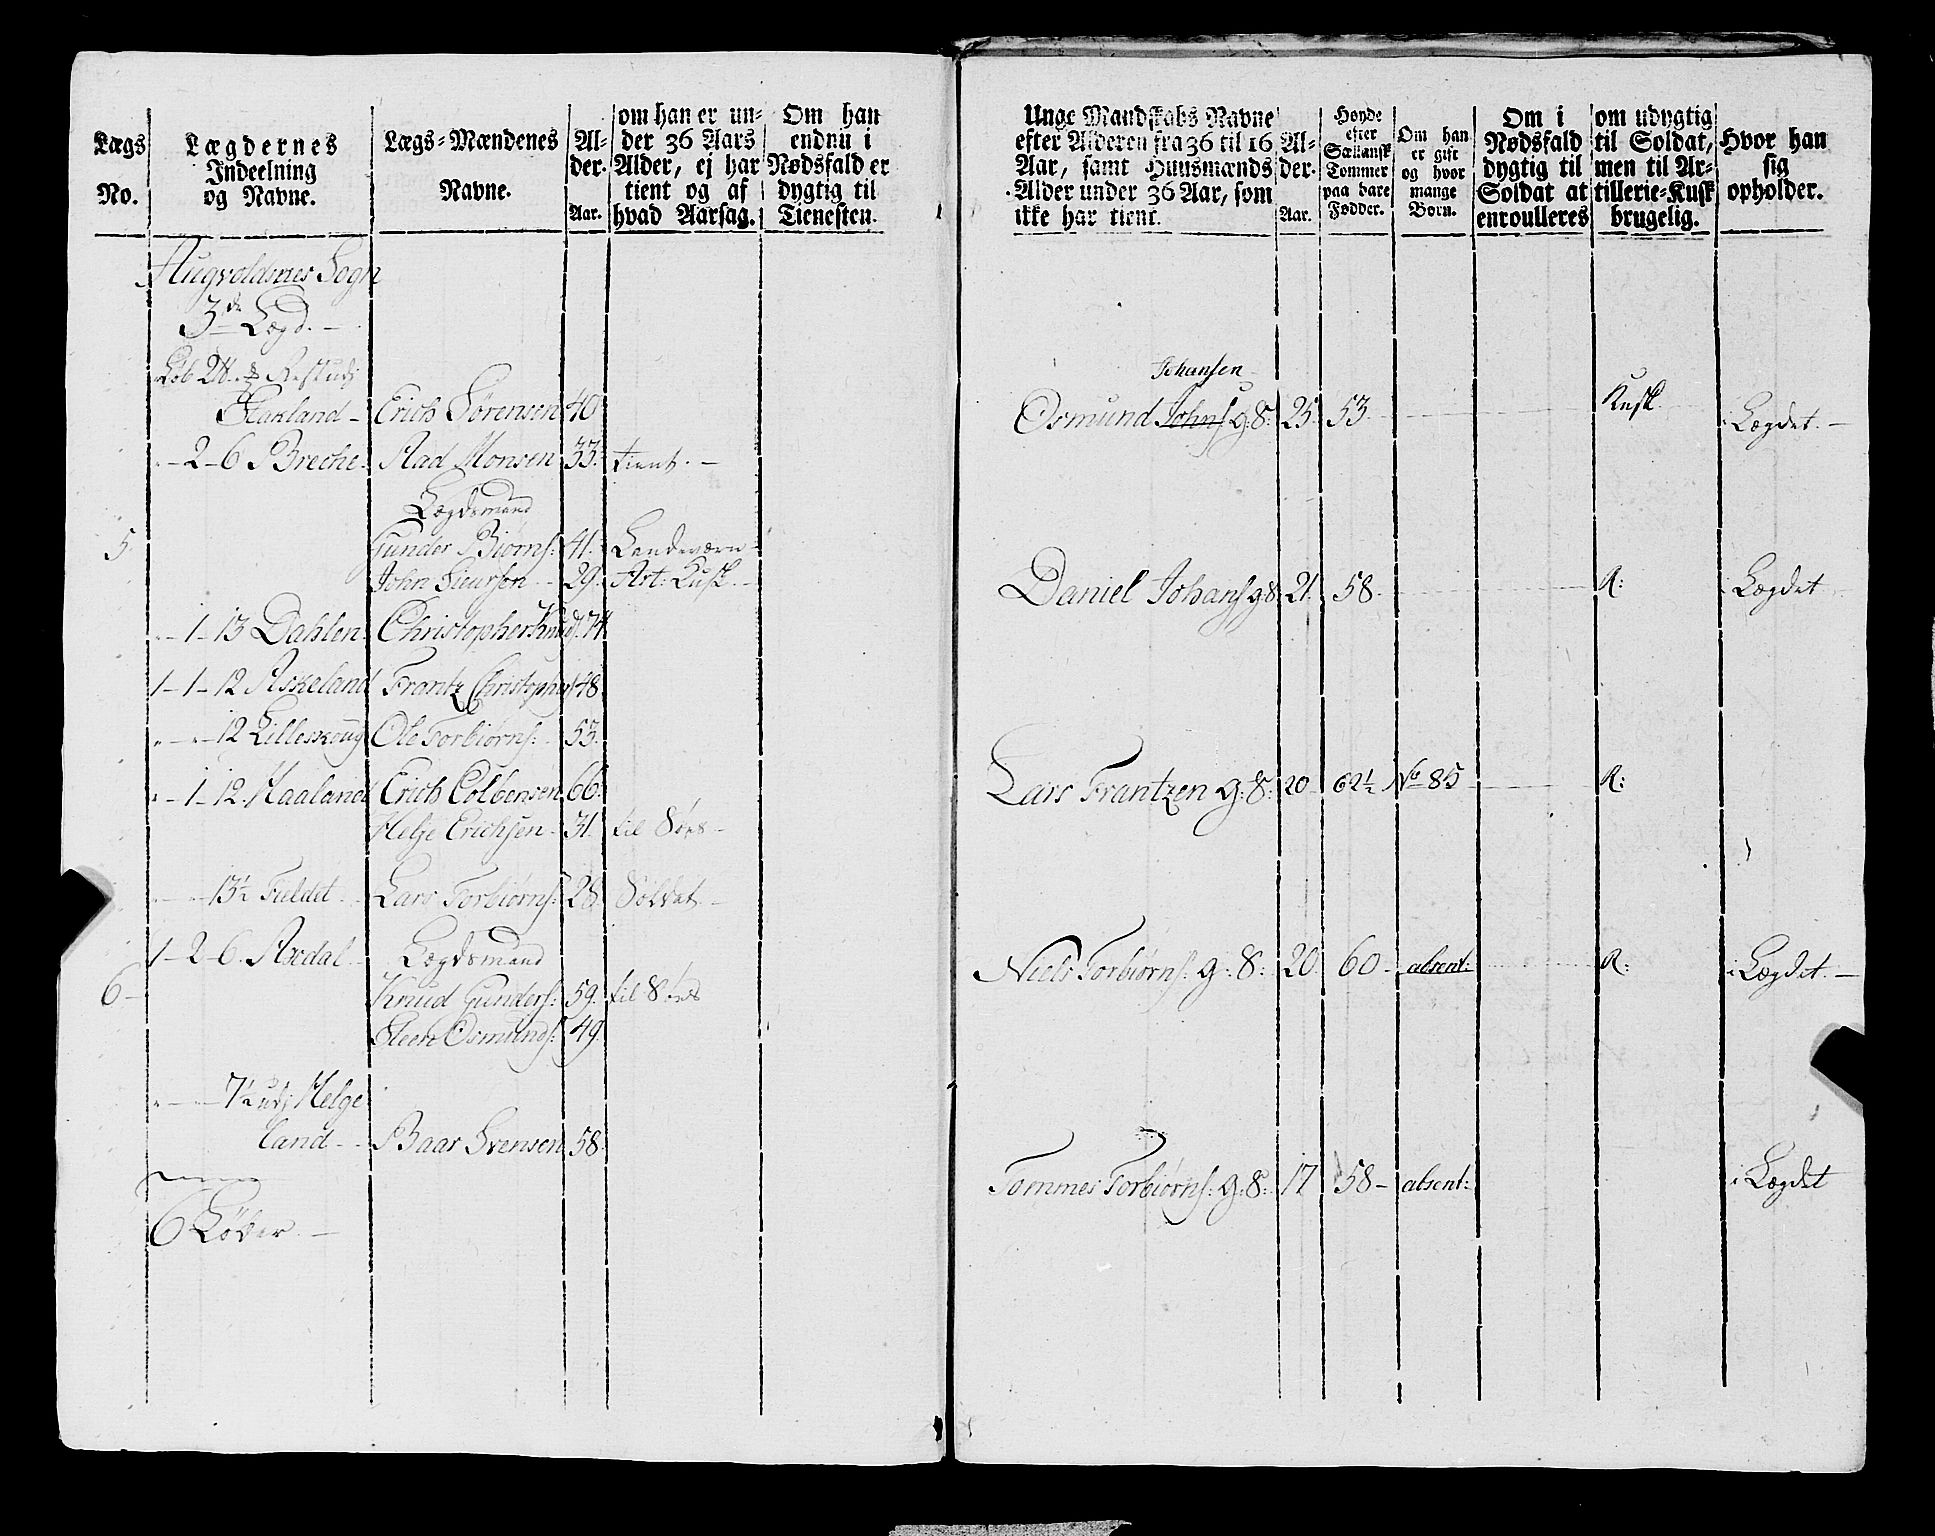 Lægs No.
Lægdernes Indeelning og Navne.
Lægs-Mændenes Navne.
Alder. Aar.
om han er under 36 Aars Alder, ej har tient og af hvad Aarsag.
Om han endnu i Nødsfald er dygtig til Tienesten.
Augvoldsnes Sogn
3de Lægd. -
Løb 2
Stakland - Erich Sörensen 40
- 2 - 6 Breche. Aad Monsen 33. tient. -
Lægdsmand
5. Gunder Biørns: 41. Landeværn -
John Siursen - 29. Art: Kusk. -
- 1 - 13 Dahlen. Christopher Knuds. 74
1 - 1 - 12 Askeland Frantz Christophers 48.
" - " - 12 Lilleskoug Ole Torbiörns: 53.
" - 1 - 12. Haaland Erich Colbensen 66.
Helje Erichsen - 31. til Söes -
" - " 13½ Fuldet. Lars Torbiörns: 28. Soldat -
1 - 2 - 6. Asedal - Lægdsmand
6 - Knud Gunders: 59. til Söes
Osmunds: 49.
" - " 7½ udj Helge
land - - Baar Svensen 58.
6 Løber. -
Unge Mandskabs Navne efter Alderen fra 36 til 16 Aar, samt Huusmænds Alder under 36 Aar, som ikke har tient.
Alder. Aar.
Høyde efter Siællansk Tommer paa bare Fødder.
Om han er gift og hvor mange Børn.
Om i Nødsfald dygtig til Soldat at enroulleres
om udygtig til Soldat, men til Artillerie-Kusk brugelig.
Hvor han sig opholder.
Johansen
Osmund Johns g: 8: 25. 53. Kusk. i Lægdet. -
Daniel Johans g 8. 21. 58. R: i Lægdet
Lars Frantzen g: 8: 20 62½ No 85 R:
Niels Torbiörns: g: 8: 20. 60 - absent: R: i Lægdet. -
Tommes Torbiörns: g: 8: 17 58 - absent: i Lægdet